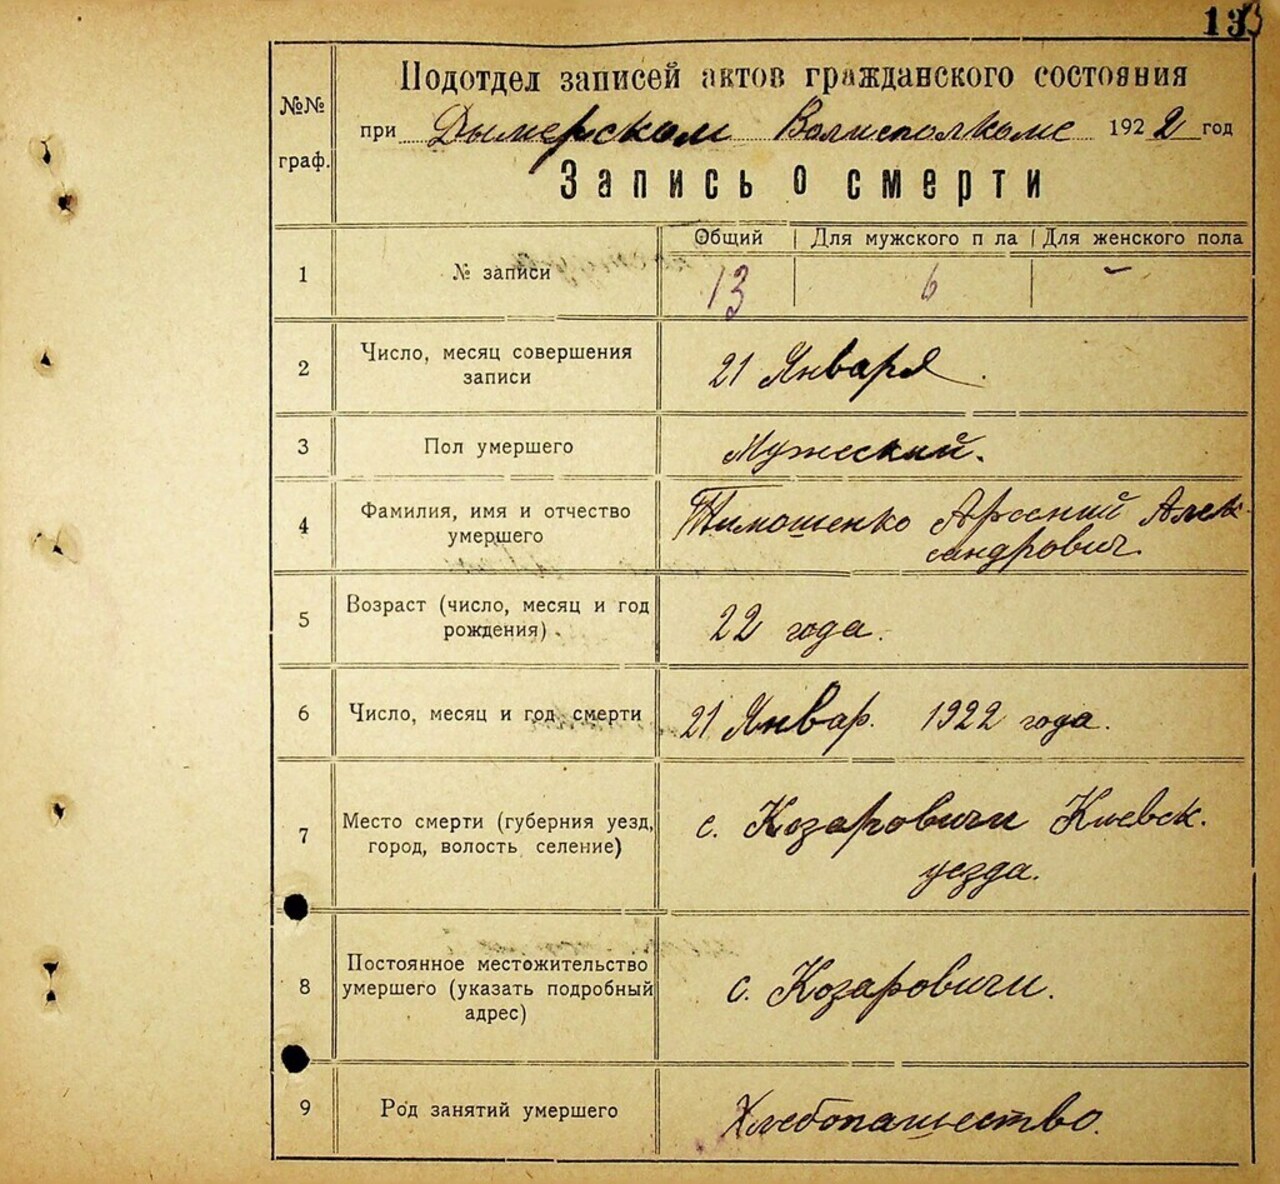 13
Подотдел записей актов гражданского состояния
при Дымерском Волисполкоме 1922 год
Запись о смерти
№№ граф.
Общий | Для мужского пола | Для женского пола
1 № записи 13 6 -
2 Число, месяц совершения
записи
21 Января.
3 Пол умершего Мужеский.
4 Фамилия, имя и отчество
умершего
Тимошенко Арсений Алек-
сандрович.
5 Возраст (число, месяц и год
рождения)
22 года.
6 Число, месяц и год смерти 21 Январ. 1922 года.
7 Место смерти (губерния уезд,
город, волость селение)
с. Козаровичи Киевск.
уезда.
8 Постоянное местожительство
умершего (указать подробный
адрес)
с. Козаровичи.
9 Род занятий умершего Хлебопашество.